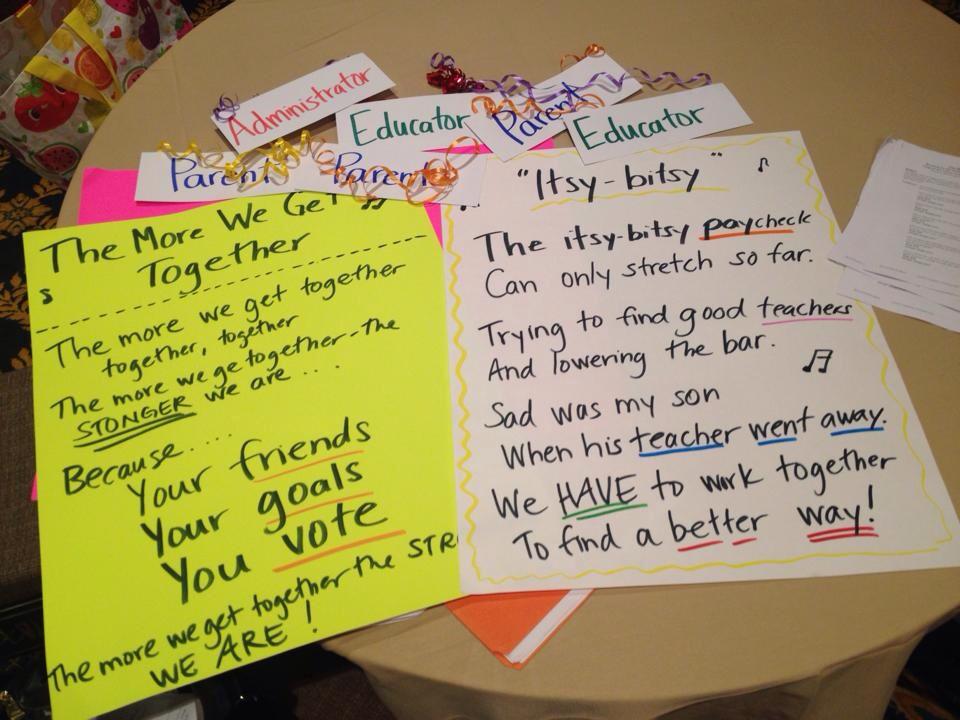 Administrator
Educator
Parent
Educator
Parent
Parent
The More We Get
Together
The more we get together
together, together
The more we ge together - the
STONGER we are ....
Because ...
Your friends
Your goals
You vote
The more we get together the STR
WE ARE!
"Itsy-bitsy"
The itsy-bitsy paycheck
Can only stretch so far.
Trying to find good teachers
And lowering the bar.
Sad was my son
When his teacher went away.
We HAVE to work together
To find a better way!